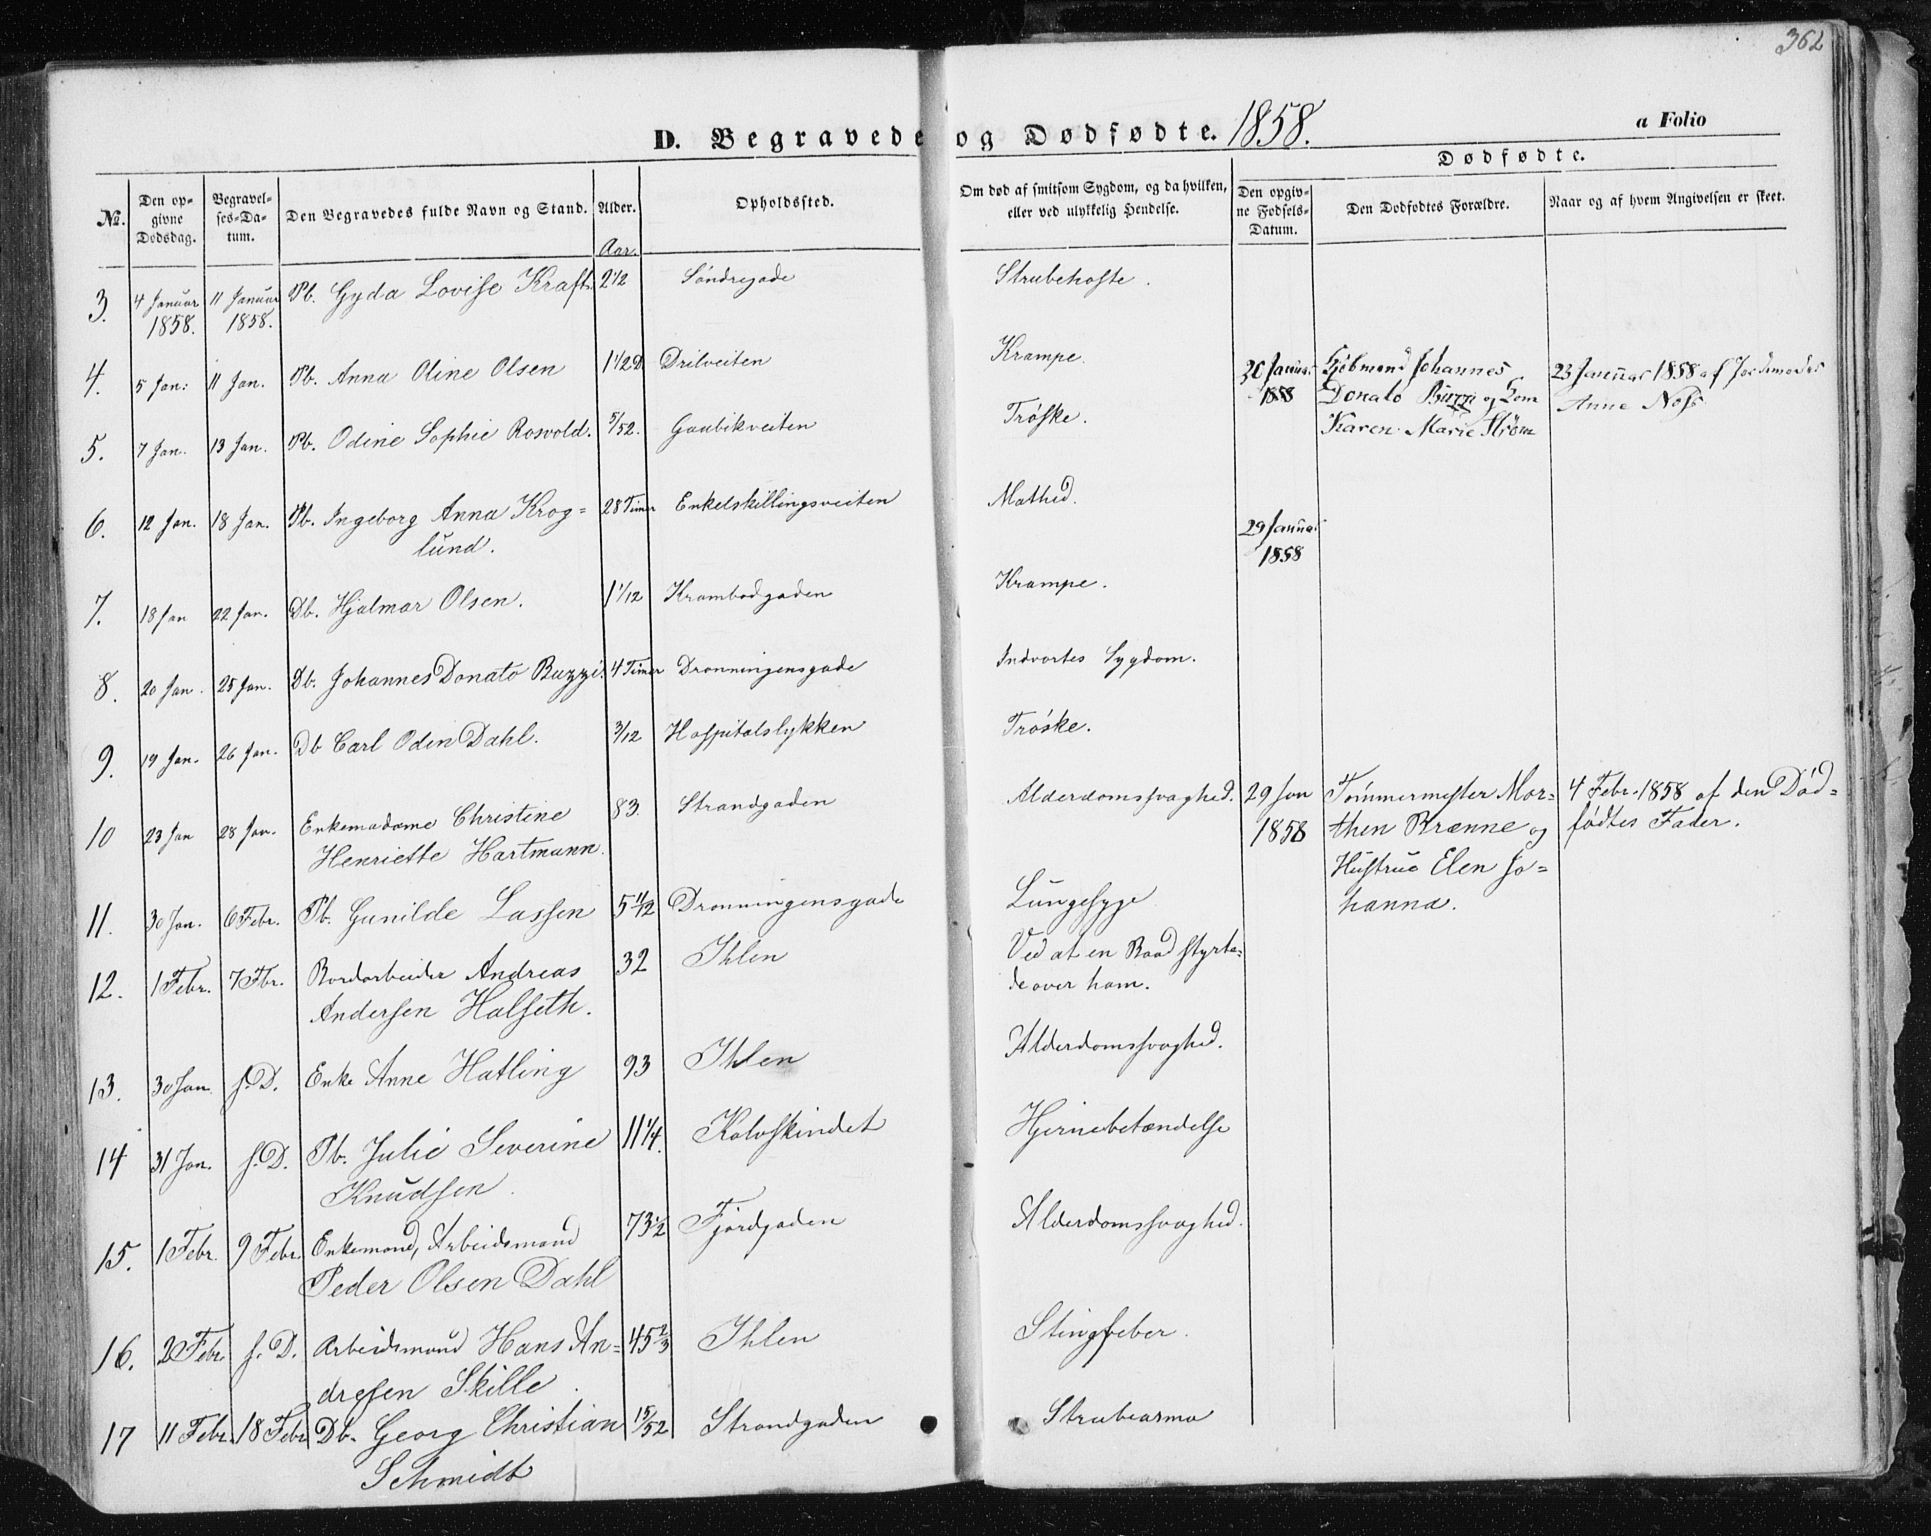 362
D. Begravede og Dødfødte. 1858.
a Folio
Dødfødte.
No. Den opgivne Dødsdag. Begravelses-Datum. Den Begravedes fulde Navn og Stand. Alder. Aar. Opholdssted. Om død af smitsom Sygdom, og da hvilken, eller ved ulykkelig Hendelse. Den opgivne Fødsels-Datum. Den Dødfødtes Forældre. Naar og af hvem Angivelsen er skeet.
3. 4 Januar 1858. 11 Januar 1858. Pb. Gyda Lovise Kraft. 2 1/2 Søndregade Strubehoste.
4. 5 Jan: 11 Jan. Pb. Anna Oline Olsen 1 1/2 D Drilveiten Krampe.
30 Januar 1858 Kjøbmand Johannes
Donato Buzzi og
Karen Marie Strøm
23 Januar 1858 af Jordmoder
Anne
5. 7 Jan. 13 Jan. Pb. Odine Sophie Rosvold. 5/52. Gaubikveiten Trøske.
6. 12 Jan. 18 Jan. Pb. Ingeborg Anna Krog=
lund. 28 Timer Enkelskillingsveiten Mathed.
29 Januar
1858
7. 18 Jan 22 Jan. Db. Hjalmar Olsen. 1 1/12 Krambodgaden Krampe.
8. 20 Jan. 25 Jan. Db. Johannes Donato Buzzi. 4 Timer Dronningensgade Indvortes Sygdom.
9. 19 Jan. 26 Jan. Db Carl Odin Dahl. 3/12 Hospitalslykken Trøske.
10 23 Jan 28 Jan. Enkemadame Christine
Henriette Hartmann. 83. Strandgaden Alderdomssvaghed.
29 Jan
1858
Tømmermester Mor=
then Brænne og
Hustrue Elen Jo=
hanna.
4 Febr. 1858 af den Død=
fødtes Fader.
11. 30 Jan. 6 Febr. Pb. Gunilde Lassen 5 1/2 Dronningensgade Lungesyge
12. 1 Febr. 7 Fbr. Bordarbeider Andreas
Andersen Halseth. 32 Ihlen Ved at en Baad styrte=
de over ham.
13. 30 Jan. s. D. Enke Anne Hatling 93 Ihlen Alderdomssvaghed.
14 31 Jan. s. D. Pb. Julie Severine
Knudsen. 11 1/4. Kalvskindet Hjernebetændelse
15. 1 Febr. 9 Febr. Enkemand, Arbeidsmand
Peder Olsen Dahl 73 1/2 Fjordgaden Alderdomssvaghed.
16. 2 Febr. s. D. Arbeidsmand Hans An=
dresen Skille. 45 2/3 Ihlen Stingfeber.
17 11 Febr. 18 Febr Db. Georg Christian
Schmidt 15/52 Strandgaden